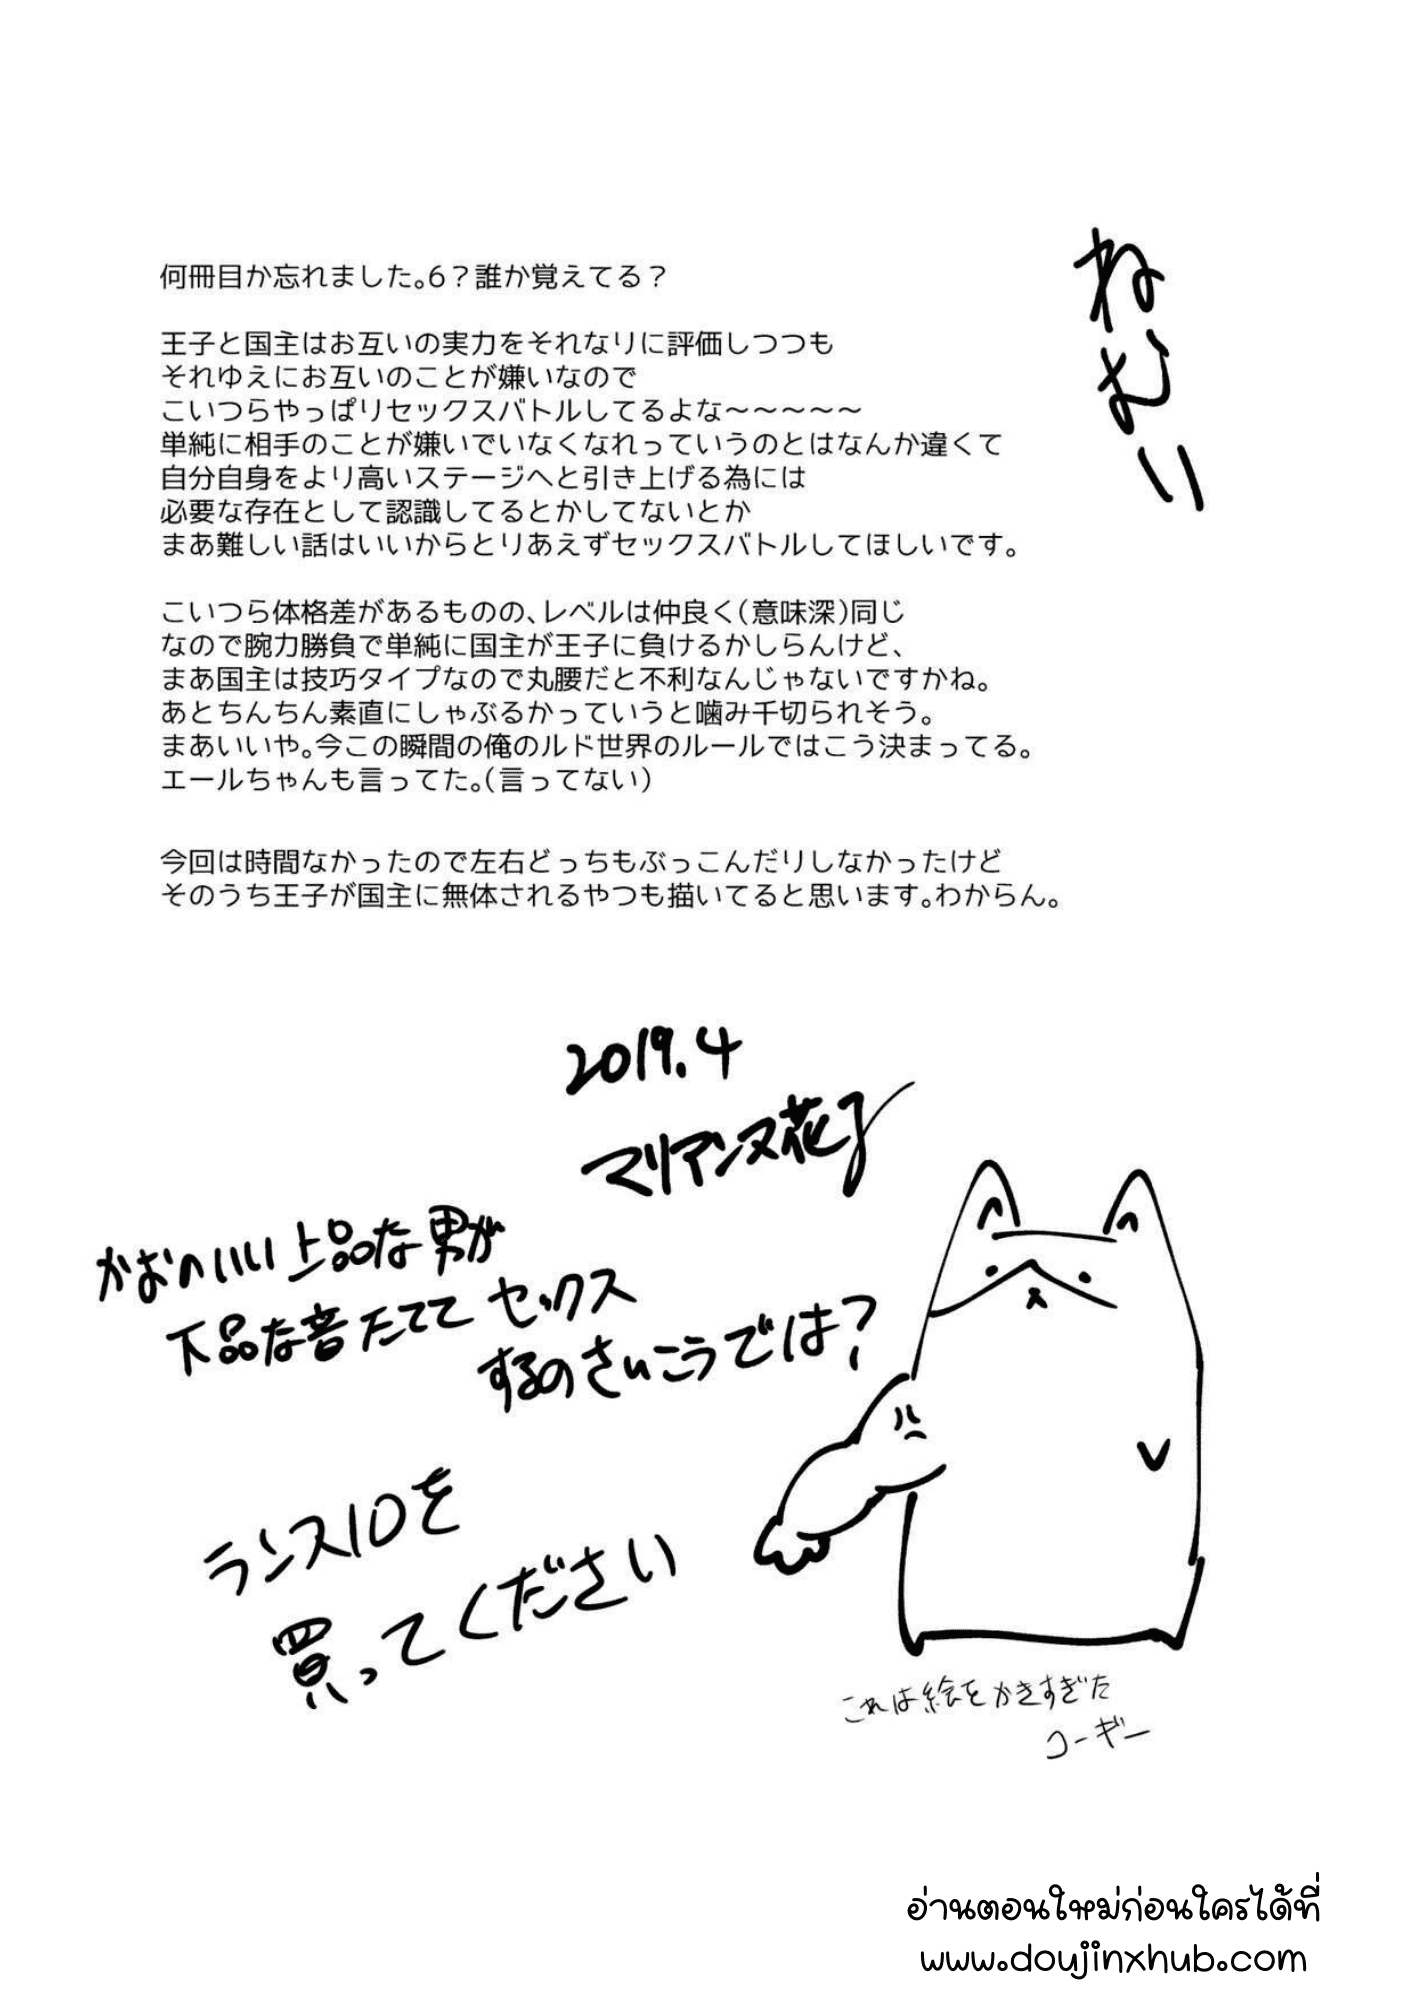 ねむい
何冊目か忘れました。6？誰か覚えてる？
王子と国主はお互いの実力をそれなりに評価しつつも
それゆえにお互いのことが嫌いなので
こいつらやっぱりセックスバトルしてるよな～～～～～
単純に相手のことが嫌いでいなくなれっていうのとはなんか違くて
自分自身をより高いステージへと引き上げる為には
必要な存在として認識してるとかしてないとか
まあ難しい話はいいからとりあえずセックスバトルしてほしいです。
こいつら体格差があるものの、レベルは仲良く（意味深）同じ
なので腕力勝負で単純に国主が王子に負けるかしらんけど、
まあ国主は技巧タイプなので丸腰だと不利なんじゃないですかね。
あとちんちん素直にしゃぶるかっていうと噛み千切られそう。
まあいいや。今この瞬間の俺のルド世界のルールではこう決まってる。
エールちゃんも言ってた。（言ってない）
今回は時間なかったので左右どっちもぶっこんだりしなかったけど
そのうち王子が国主に無体されるやつも描いてると思います。わからん。
2019.4
マリアンヌ花子
かおのいい上品な男が
下品な音たててセックス
するのさいこうでは？
ランス10を
買ってください
これは絵をかきすぎた
コーギー
อ่านตอนใหม่ก่อนใครได้ที่
www.doujinxhub.com